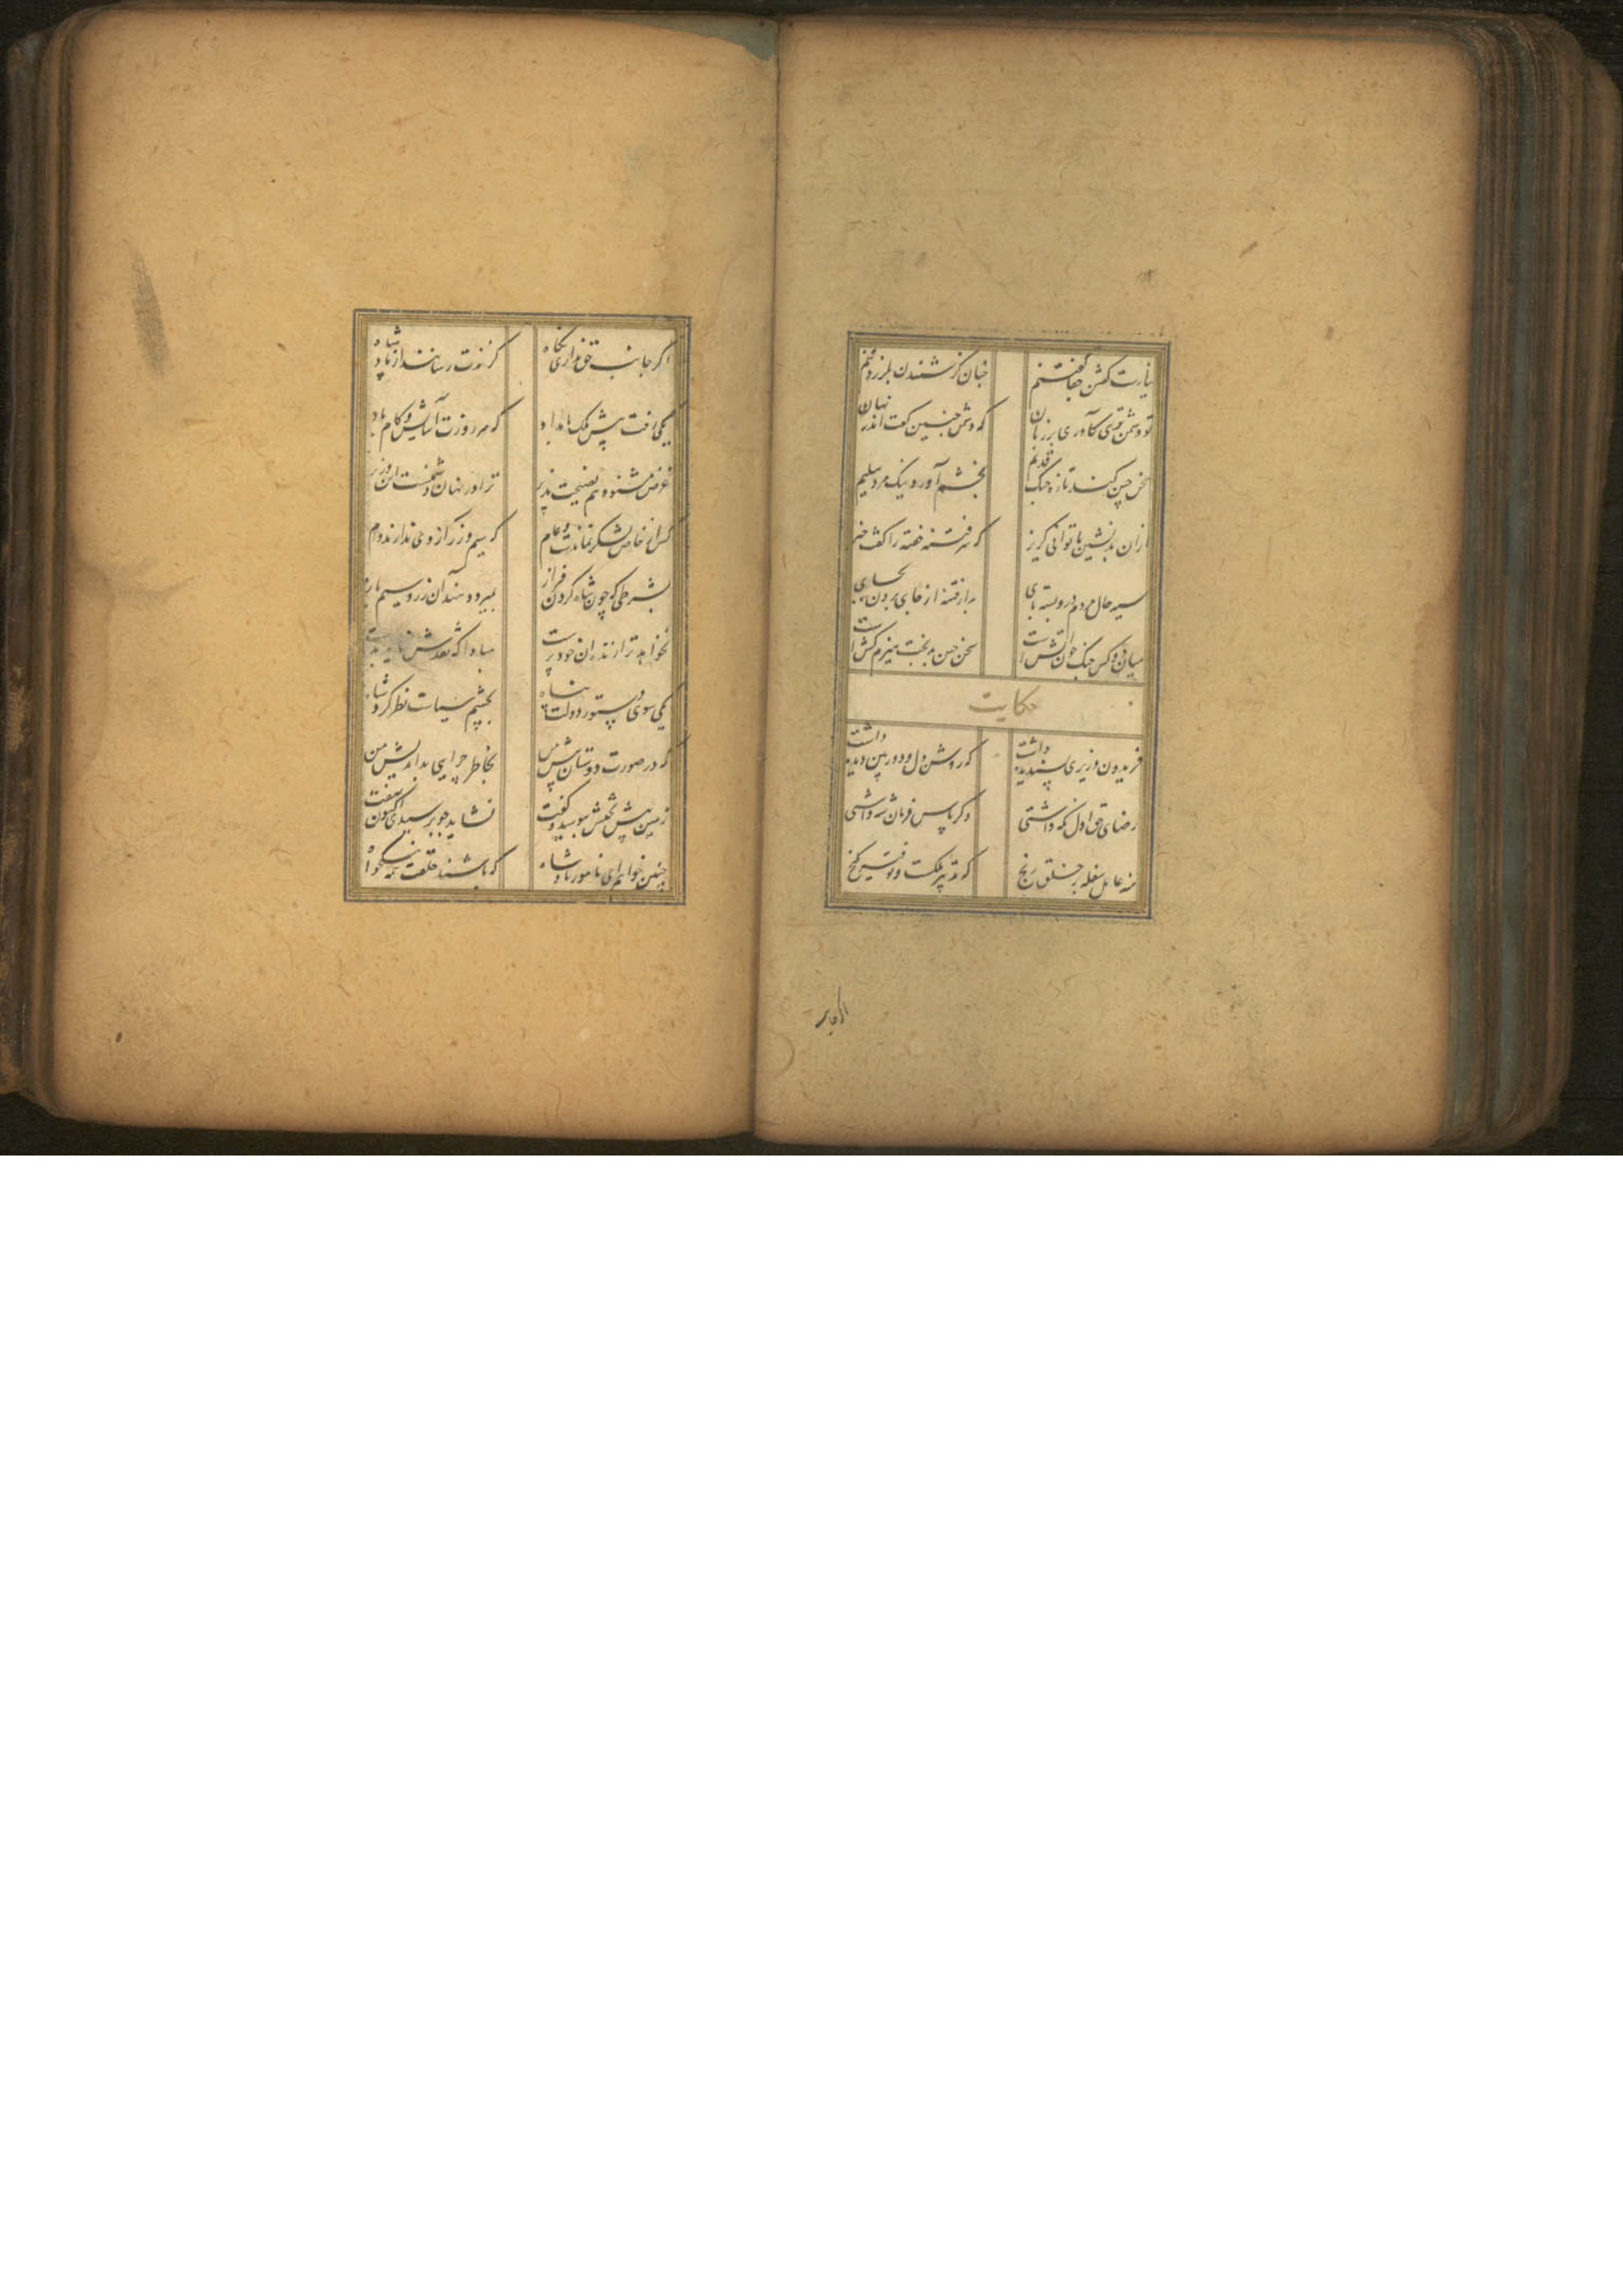 نیارست دشمن جفا گفتنم چنان کز شنیدن بلرزد تنم
تو دشمن تری کآوری بر زبان که دشمن چنین گفت اندر نهان
سخن چین کند تازه جنگ قدیم بخشم آورد نیک مرد سلیم
ازان همنشین تا توانی گریز که مر فتنه خفته را گفت خیز
سیه چال و مرد اندرو بسته پای به از فتنه از جای بردن بجای
میان دو کس جنگ چون آتش است سخن چین بدبخت هیزم کش است
حکایت
فریدون وزیری پسندیده داشت که روشن دل و دوربین دیده داشت
رضای حق اول نگه داشتی دگر پاس فرمان شه داشتی
نهد عامل سفله بر خلق رنج که تدبیر ملکست و توفیر گنج
اگر جانب
اگر جانب حق نداری نگاه گزندت رسانند از پادشاه
یکی رفت پیش ملک بامداد که هر روزت آسایش و کام باد
غرض مشنو و هم نصیحت پذیر ترا در نهان دشمنست این وزیر
کس از خاص لشکر نماندست و عام که سیم و زر از وی ندارند وام
بشرطی که چون شاه گردن فراز بمیرد دهند آن زر و سیم باز
نخواهد ترا زنده آن خودپرست مبادا که نقدش نیاید بدست
یکی سوی دستور دولت پناه بچشم سیاست نظر کرد شاه
که در صورت دوستان پیش من بخاطر چرایی بداندیش من
زمین پیش تختش ببوسید و گفت نشاید چو پرسیدی اکنون نهفت
چنین خواهم ای نامور پادشاه که باشند خلقت همه نیکخواه